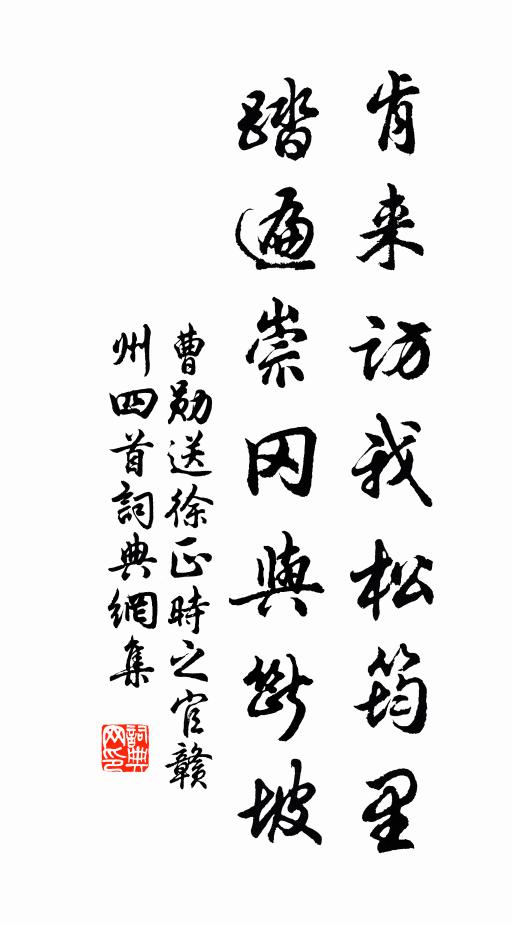 肯来访我松筠里
踏遍崇冈與断坡
曹勋送徐正時之官赣
州四首詞典網集
詞典網印